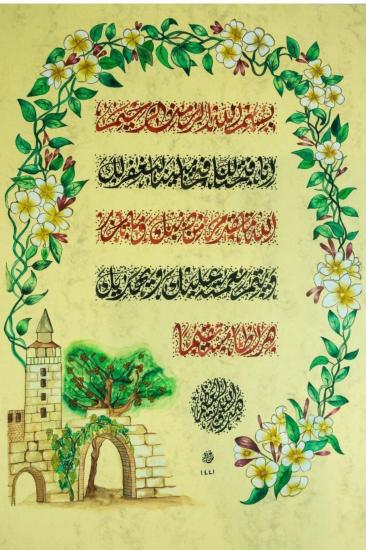 بسم الله الرحمن الرحيم
إنا فتحنا لك فتحا مبينا ليغفر لك
الله ما تقدم من ذنبك وما تأخر
ويتم نعمته عليك ويهديك
صراطا مستقيما